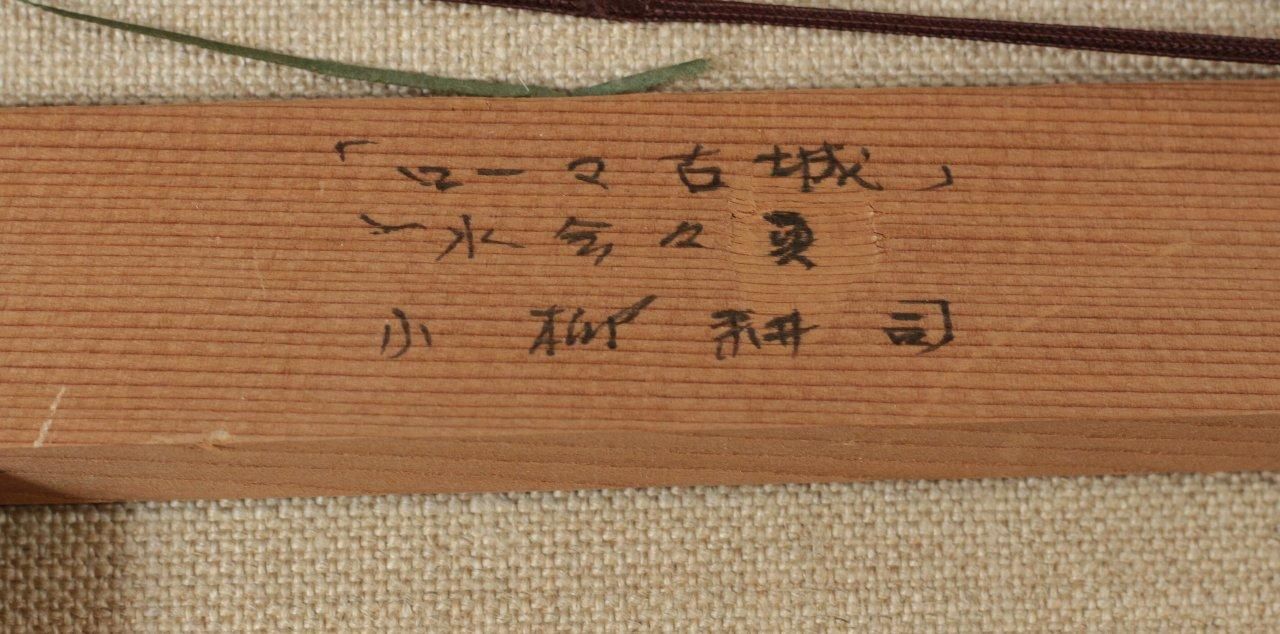 「ローマ古城」
氷会々員
小柳耕司